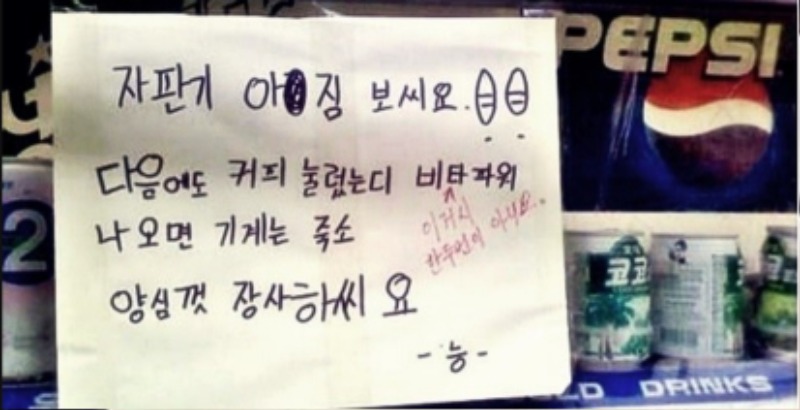 PEPSI
자판기 아짐 보씨요.
다음에도 커피 눌렀는디 비타파워
나오면 기계는 죽소
이거시
한두번이 아녀요.
양심껏 장사하씨요
-능-
2
코코
DRINKS